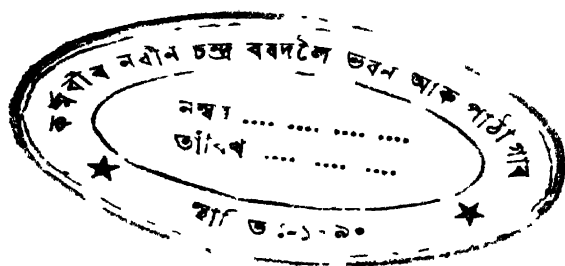 কৰ্মবীৰ নবীন চন্দ্ৰ বৰদলৈ ভবন আৰু পাঠাগাৰ
নম্বৰ .... .... .... ....
তাৰিখ .... .... ....
স্থাপিত :-১-৯০